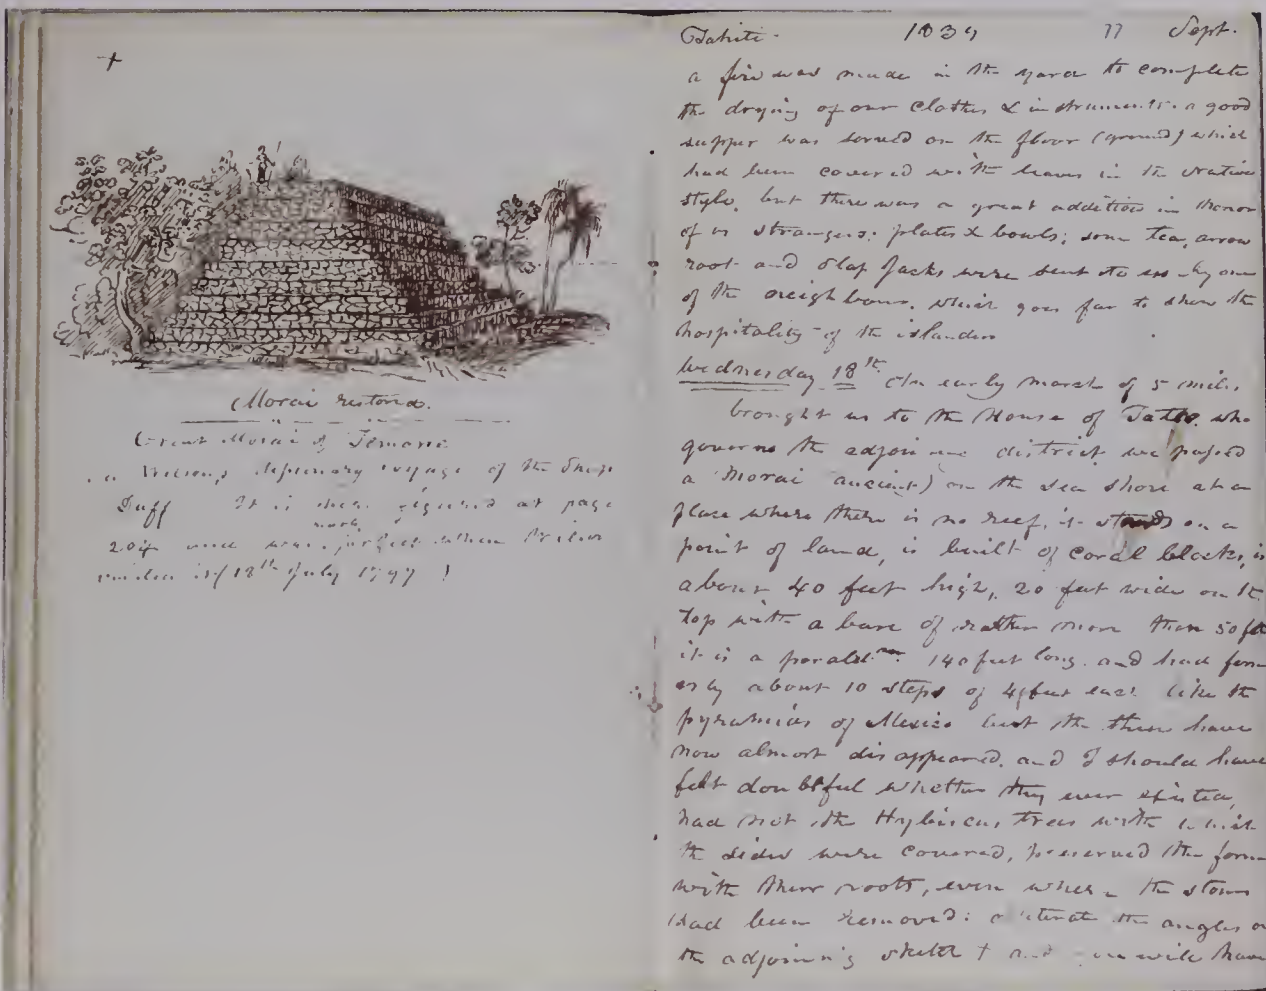 +
Morai restored.
Great Morai of Temarre
Wilson's Missionary voyage of the Ship
Duff It is there figured at page
204 and was perfect when Wilson
visited it (18th July 1797)
Tahiti. 1839 77 Sept.
a fire was made in the yard to complete
the drying of our clothes & instruments. a good
supper was served on the floor (ground) which
had been covered with leaves in the native
style, but there was a great addition in honor
of us strangers: plates & bowls; some tea, arrow
root and slap Jacks were sent to us by one
of the neighbours, which goes far to show the
hospitality of the islanders
Wednesday 18th. An early march of 5 miles
brought us to the House of Tatto. who
governs the adjoining district, we passed
a Morai ancient) on the sea shore at a
place where there is no reef, it stands on a
point of land, is built of coral blocks, is
about 40 feet high, 20 feet wide on the
top with a base of rather more than 50 feet
it is a 140 feet long. and had form
erly about 10 steps of 4 feet each like the
pyramids of Mexico but the these have
now almost disappeared. and I should have
felt doubtful whether they ever existed,
had not the Hybiscus trees with which
the sides were covered, preserved the form
with their roots, even where the stones
had been removed: the angles of
the adjoining sketch + and you will have